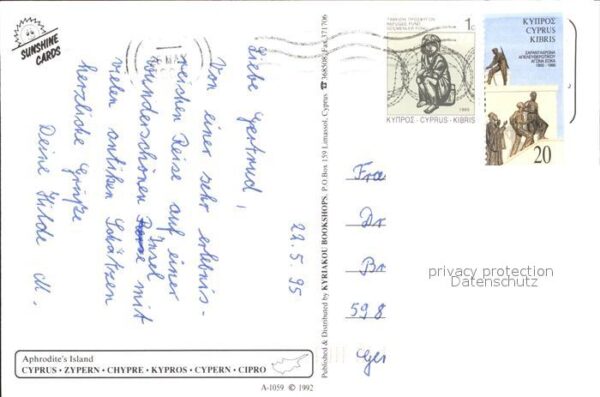 SUNSHINE
CARDS
Liebe Gertrud,
Von einer sehr erlebnis-
reichen Reise auf einer
wunderschönen Insel mit
vielen antiken Schätzen
herzliche Grüße
Deine Hilde M.
22.5.95
Aphrodite's Island
CYPRUS · ZYPERN · CHYPRE · KYPROS · CYPERN · CIPRO
A-1059 © 1992
Published & Distributed by KYRIAKOU BOOKSHOPS. P.O Box 159 Limassol, Cyprus ☎ 368508, Fax 371706
1c
1995
ΚΥΠΡΟΣ · CYPRUS · KIBRIS
ΚΥΠΡΟΣ
CYPRUS
KIBRIS
ΣΑΡΑΝΤΑΧΡΟΝΑ
ΑΠΕΛΕΥΘΕΡΩΤΙΚΟΥ
ΑΓΩΝΑ ΕΟΚΑ
1955 - 1995
20
Frau
Dr
Br
598
Ger
privacy protection
Datenschutz